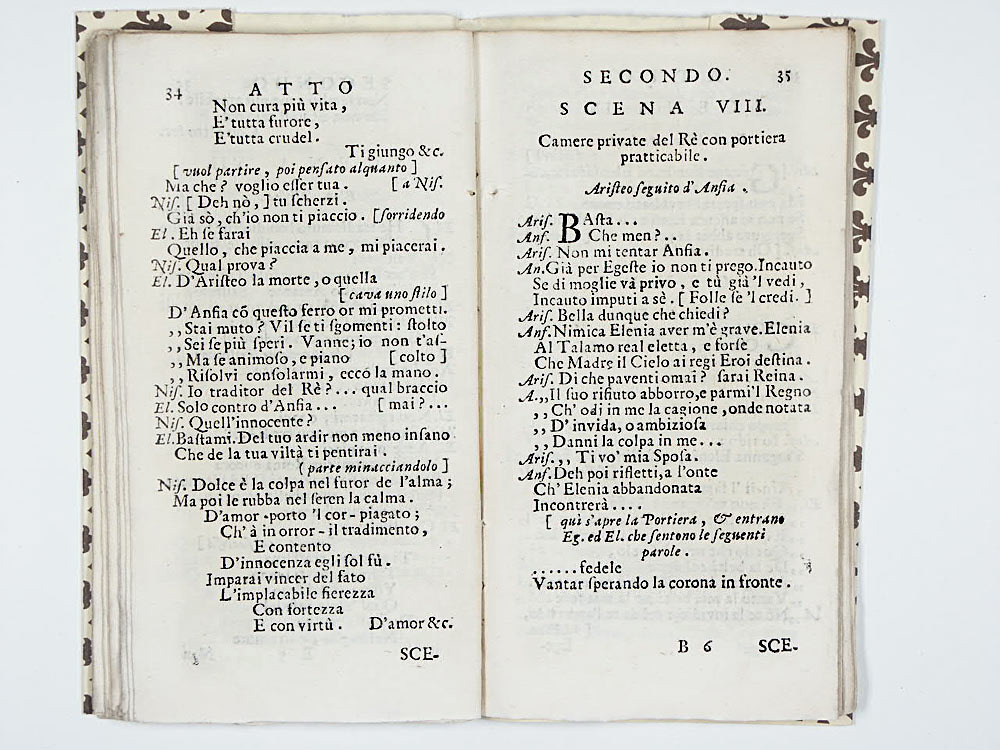 34 ATTO
Non cura più vita,
E' tutta furore,
E' tutta crudel.
Ti giungo &c.
[ vuol partire, poi pensato alquanto ]
Ma che? voglio esser tua. [ a Nis.
Nis. [ Deh nò, ] tu scherzi.
Già sò, ch'io non ti piaccio. [sorridendo
El. Eh se farai
Quello, che piaccia a me, mi piacerai.
Nis. Qual prova?
El. D'Aristeo la morte, o quella
[ cava uno stilo ]
D'Ansia cō questo ferro or mi prometti.
,,Stai muto? Vil se ti sgomenti: stolto
,,Sei se più speri. Vanne; io non t'as-
,,Ma se animoso, e piano [ colto ]
,,Risolvi consolarmi, ecco la mano.
Nis. Io traditor del Rè?... qual braccio
El. Solo contro d'Ansia... [ mai?...
Nis. Quell'innocente?
El. Bastami. Del tuo ardir non meno insano
Che de la tua viltà ti pentirai.
( parte minacciandolo ]
Nis. Dolce è la colpa nel furor de l'alma;
Ma poi le rubba nel seren la calma.
D'amor -porto 'l cor- piagato;
Ch' à in orror- il tradimento,
E contento
D'innocenza egli sol fù.
Imparai vincer del fato
L'implacabile fierezza
Con fortezza
E con virtù. D'amor &c.
SCE-
SECONDO. 35
SCENA VIII.
Camere private del Rè con portiera
pratticabile.
Aristeo seguito d'Ansia.
Aris. BAsta...
Ans. Che men?..
Aris. Non mi tentar Ansia.
An. Già per Egeste io non ti prego. Incauto
Se di moglie và privo, e tù già 'l vedi,
Incauto imputi a sè. [ Folle se 'l credi. ]
Aris. Bella dunque che chiedi?
Ans. Nimica Elenia aver m'è grave. Elenia
Al Talamo real eletta, e forse
Che Madre il Cielo ai regi Eroi destina.
Aris. Di che paventi omai? sarai Reina.
A. ,,Il suo rifiuto abborro, e parmi'l Regno
,,Ch' odj in me la cagione, onde notata
,,D' invida, o ambiziosa
,,Danni la colpa in me...
Aris. ,,Ti vo' mia Sposa.
Ans. Deh poi rifletti, a l'onte
Ch' Elenia abbandonata
Incontrerà....
[ qui s'apre la Portiera, & entrano
Eg. ed El. che sentono le seguenti
parole.
......fedele
Vantar sperando la corona in fronte.
B 6 SCE-